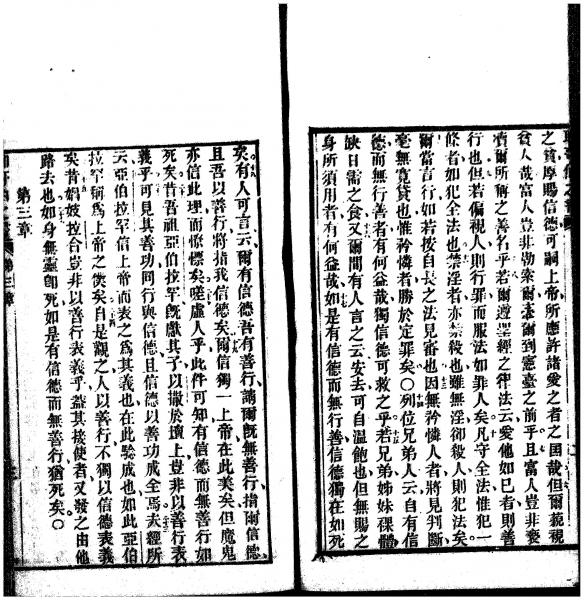 之貧厚賜信德可嗣上帝所應許諸愛之者之國哉但爾藐視
貧人哉富人豈非勒索爾素爾到憲臺之前乎且富人豈非褻
瀆爾所稱之善名乎若爾遵聖經之律法云愛他如己者則善
行也但若偏視人則行罪而服法如罪人矣凡守全法惟犯一
條者如犯全法也禁淫者亦禁殺也雖無淫卻殺人則犯法矣
爾當言行如若按自長之法見審也因無矜憐者將見判斷
毫無寬貸也惟矜憐者勝於定罪矣〇列位兄弟人云自有信
德而無行善者有何益哉獨信德可救之乎若兄弟姊妹裸體
缺日需之食又爾間有人言之云安去可自溫飽也但無賜之
身所須用者有何益哉如是有信德而無行善信德獨在如死
矣有人可言云爾有信德吾有善行請爾旣無善行指爾信德
且吾以善行將指我信德矣爾信獨一上帝在此美矣但魔鬼
亦信此理而慄慄矣嗟虛人乎此件可知有信德而無善行如
死矣昔吾祖亞伯拉罕旣獻其子以撒於壇上豈非以善行表
義乎可見其善功同行與信德且信德以善功成全焉夫經所
云亞伯拉罕信上帝而表之為其義也在此驗成也如此亞伯
拉罕稱為上帝之僕矣自是觀之人以善行不獨以信德表義
矣昔娼妓拉合豈非以善行表義乎蓋其接使者又發之由他
路去也如身無靈卽死如是有信德而無善行猶死矣〇
第三章
第三章